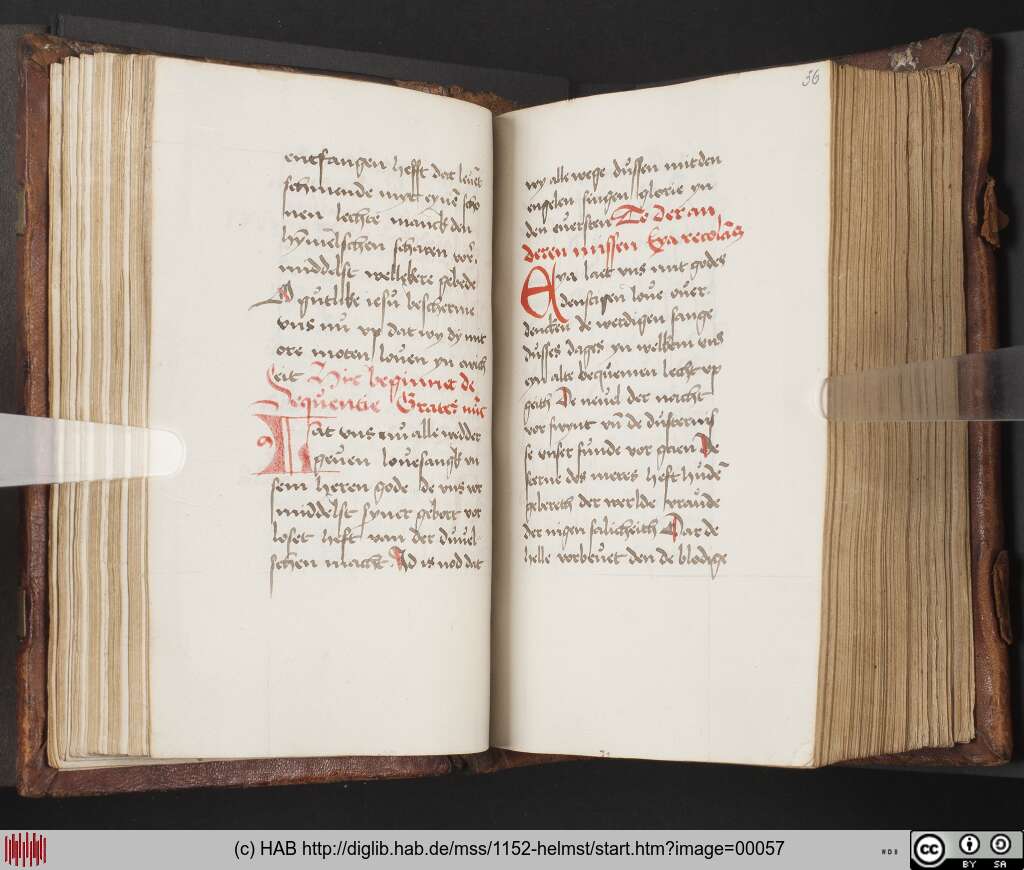 entfangen hefft dat leuēt
schinende myt eynē scho
nen lechte manck den
hȳmelschen scharen vor
middelst wellekere gebede
O gutlike iesu bescherme
vns nu vp dat wy dy mit
ere moten louen yn ewich
eit Hir beginnet de
Sequencie Grates nūc
Lat vns nu alle wedder
geuen louesangk vn
sem heren gode de vns vor
middelst syner gebort vor
loset heft van der duuel
schen macht Id is nod dat
36
wy alle wege dussen mit den
engelen singhen glorie yn
den euersten To der an
deren missen Eya recolam9
Eya laet vns mit godes
denstigen loue ouer
dencken de werdigen sange
dusses dages yn welkem vns
eyn alte bequemen lecht vp
geith De neuel der nacht
vor swynt vn de dusternis
se vnser sunde vor gaen De
sterne des meres heft hudē
gebereth der werlde vraude
der nigen salicheith Dat de
helle vorbeuet den de blodige
(c) HAB http://diglib.hab.de/mss/1152-helmst/start.htm?image=00057
WDB
cc
BY SA